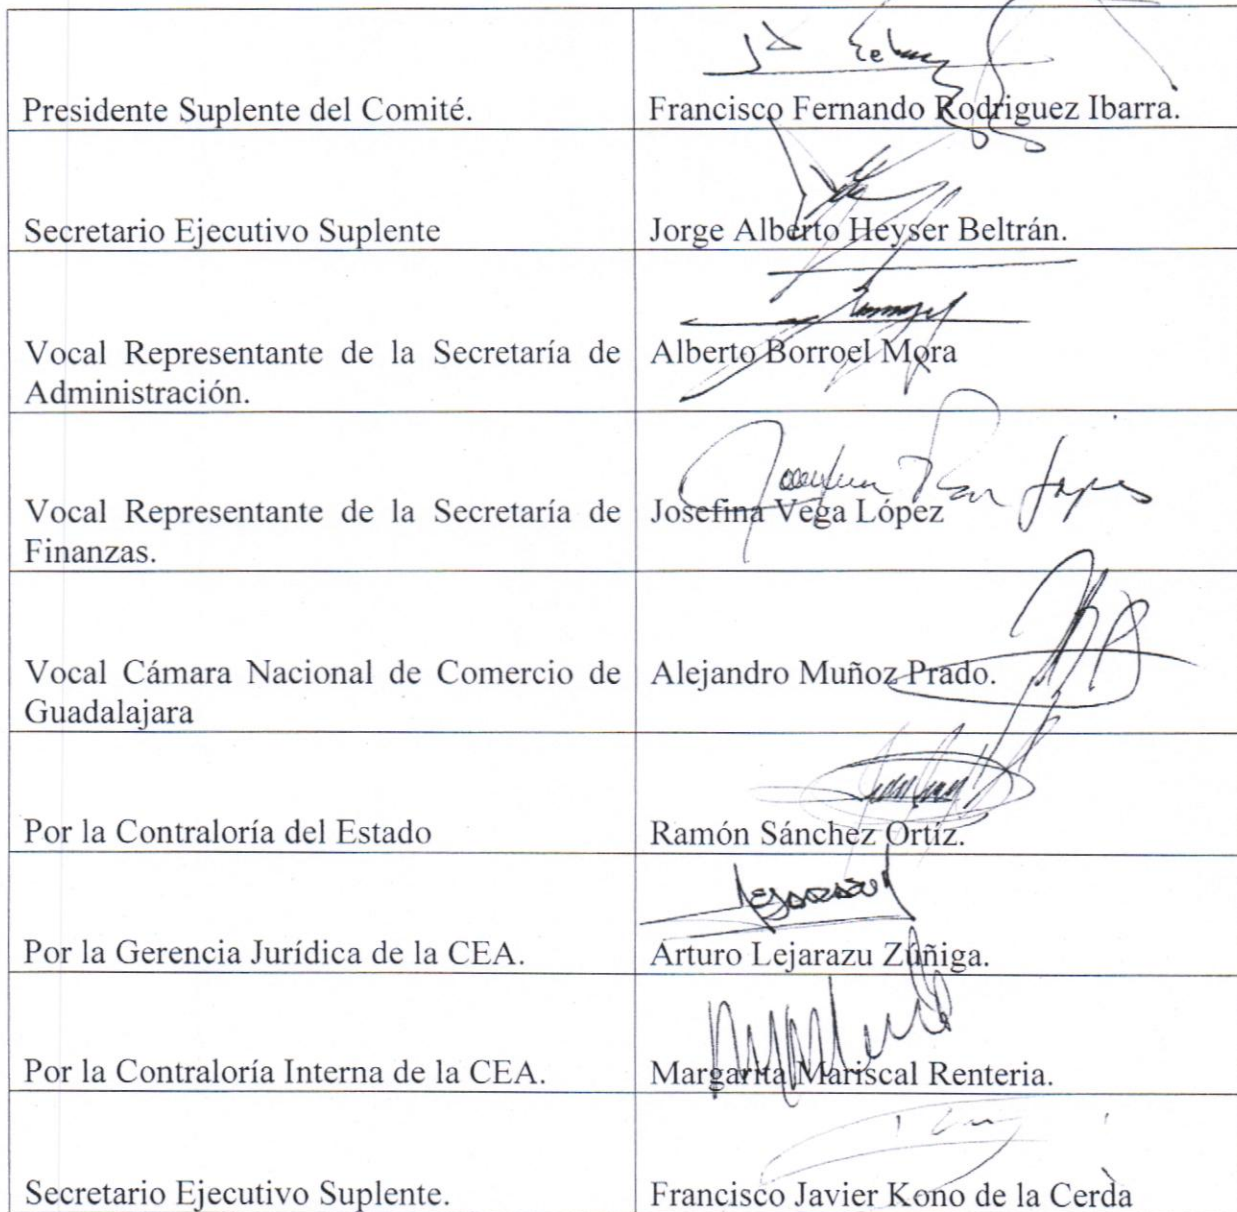 Presidente Suplente del Comité.
Francisco Fernando Rodriguez Ibarra.
Secretario Ejecutivo Suplente
Jorge Alberto Heyser Beltrán.
Vocal Representante de la Secretaría de
Administración.
Alberto Borroel Mora
Vocal Representante de la Secretaría de
Finanzas.
Josefina Vega López
Vocal Cámara Nacional de Comercio de
Guadalajara
Alejandro Muñoz Prado.
Por la Contraloría del Estado
Ramón Sánchez Ortíz.
Por la Gerencia Jurídica de la CEA.
Arturo Lejarazu Zúñiga.
Por la Contraloría Interna de la CEA.
Margarita Mariscal Renteria.
Secretario Ejecutivo Suplente.
Francisco Javier Kono de la Cerda